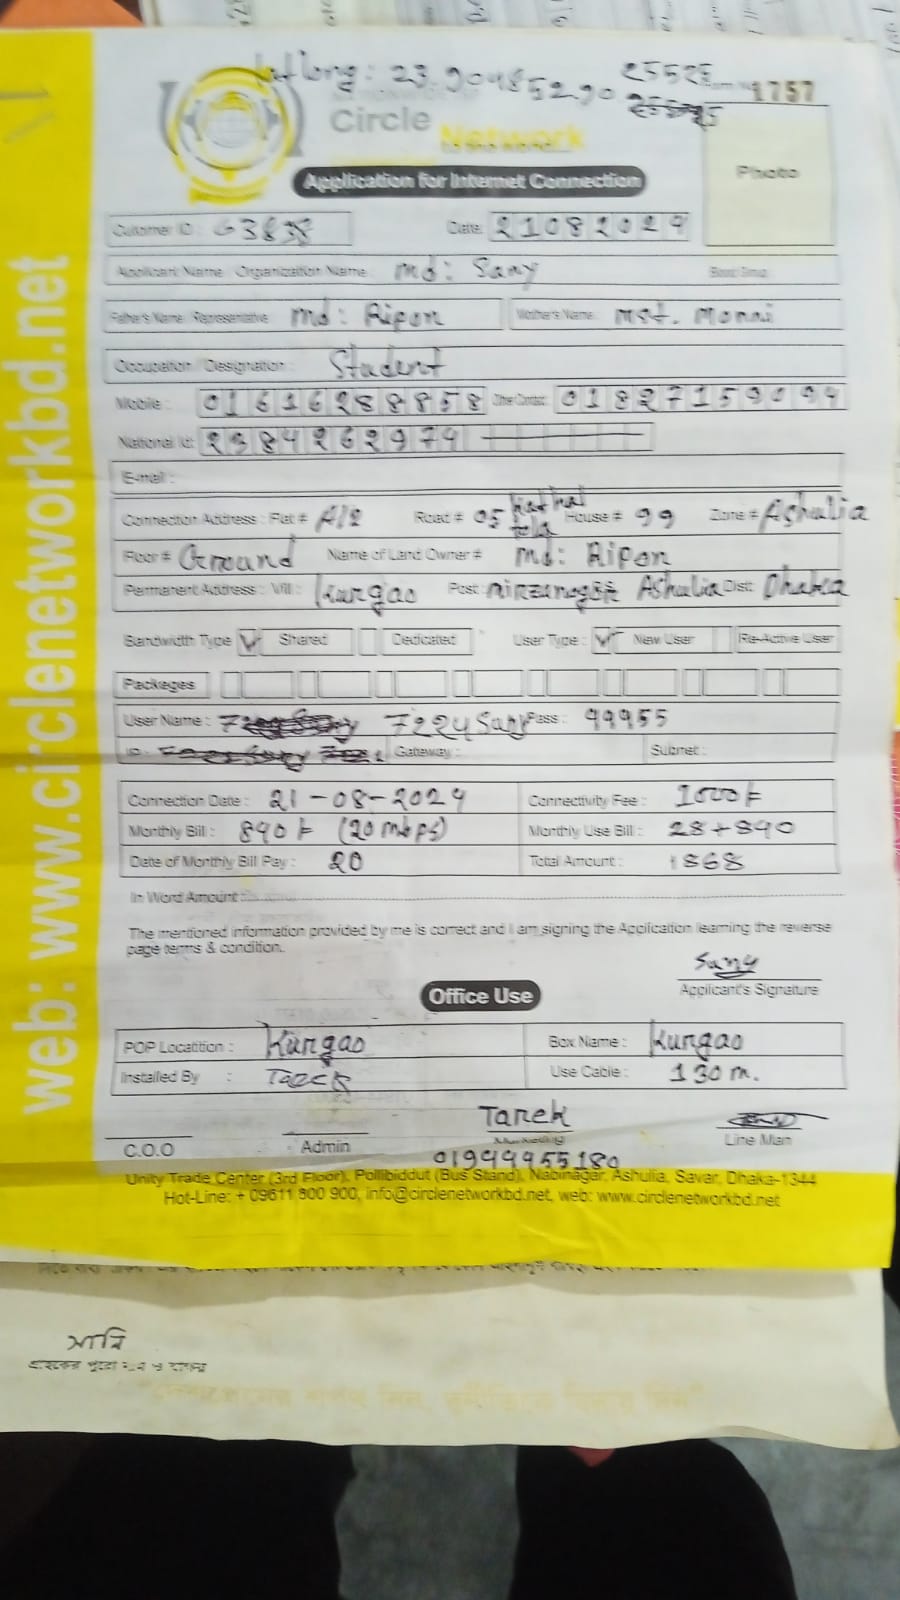 Lat long: 23.90485290 25525
1757
Circle
Network
Photo
Application for Internet Connection
Customer ID : G3838 Date: 21082024
Applicant Name / Organization Name : md: Sany
Father's Name / Representative md: Ripon Mother's Name: Mst. Monni
Occupation / Designation : Student
Mobile : 01616288858 Other Contact: 01827159094
National Id: 2384262974
E-mail :
Connection Address : Flat # A/2 Road # 05 kathal tola House # 99 Zone # Ashulia
Floor # Ground Name of Land Owner # md: Ripon
Permanent Address : Vill : Kurgao Post: Ashulia Dist: Dhaka
Bandwidth Type Shared Dedicated User Type : New User Re-Active User
Packeges
User Name : 7224Sany Pass : 99955
IP : Gateway : Subnet :
Connection Date : 21-08-2024 Connectivity Fee : 1000৳
Monthly Bill : 890৳ (20 mbps) Monthly Use Bill : 28+890
Date of Monthly Bill Pay : 20 Total Amount : 1868
In Word Amount :
The mentioned information provided by me is correct and I am signing the Application learning the reverse
page terms & condition.
Sany
Applicant's Signature
Office Use
POP Locatition : Kurgao Box Name : Kurgao
Installed By : Tarek Use Cable : 130 m.
Tarek
C.O.O Admin Marketing Line Man
01944455180
Unity Trade Center (3rd Floor), Pollibiddut (Bus Stand), Nabinagar, Ashulia, Savar, Dhaka-1344
Hot-Line: + 09611 800 900, info@circlenetworkbd.net, web: www.circlenetworkbd.net
web: www.circlenetworkbd.net
সানি